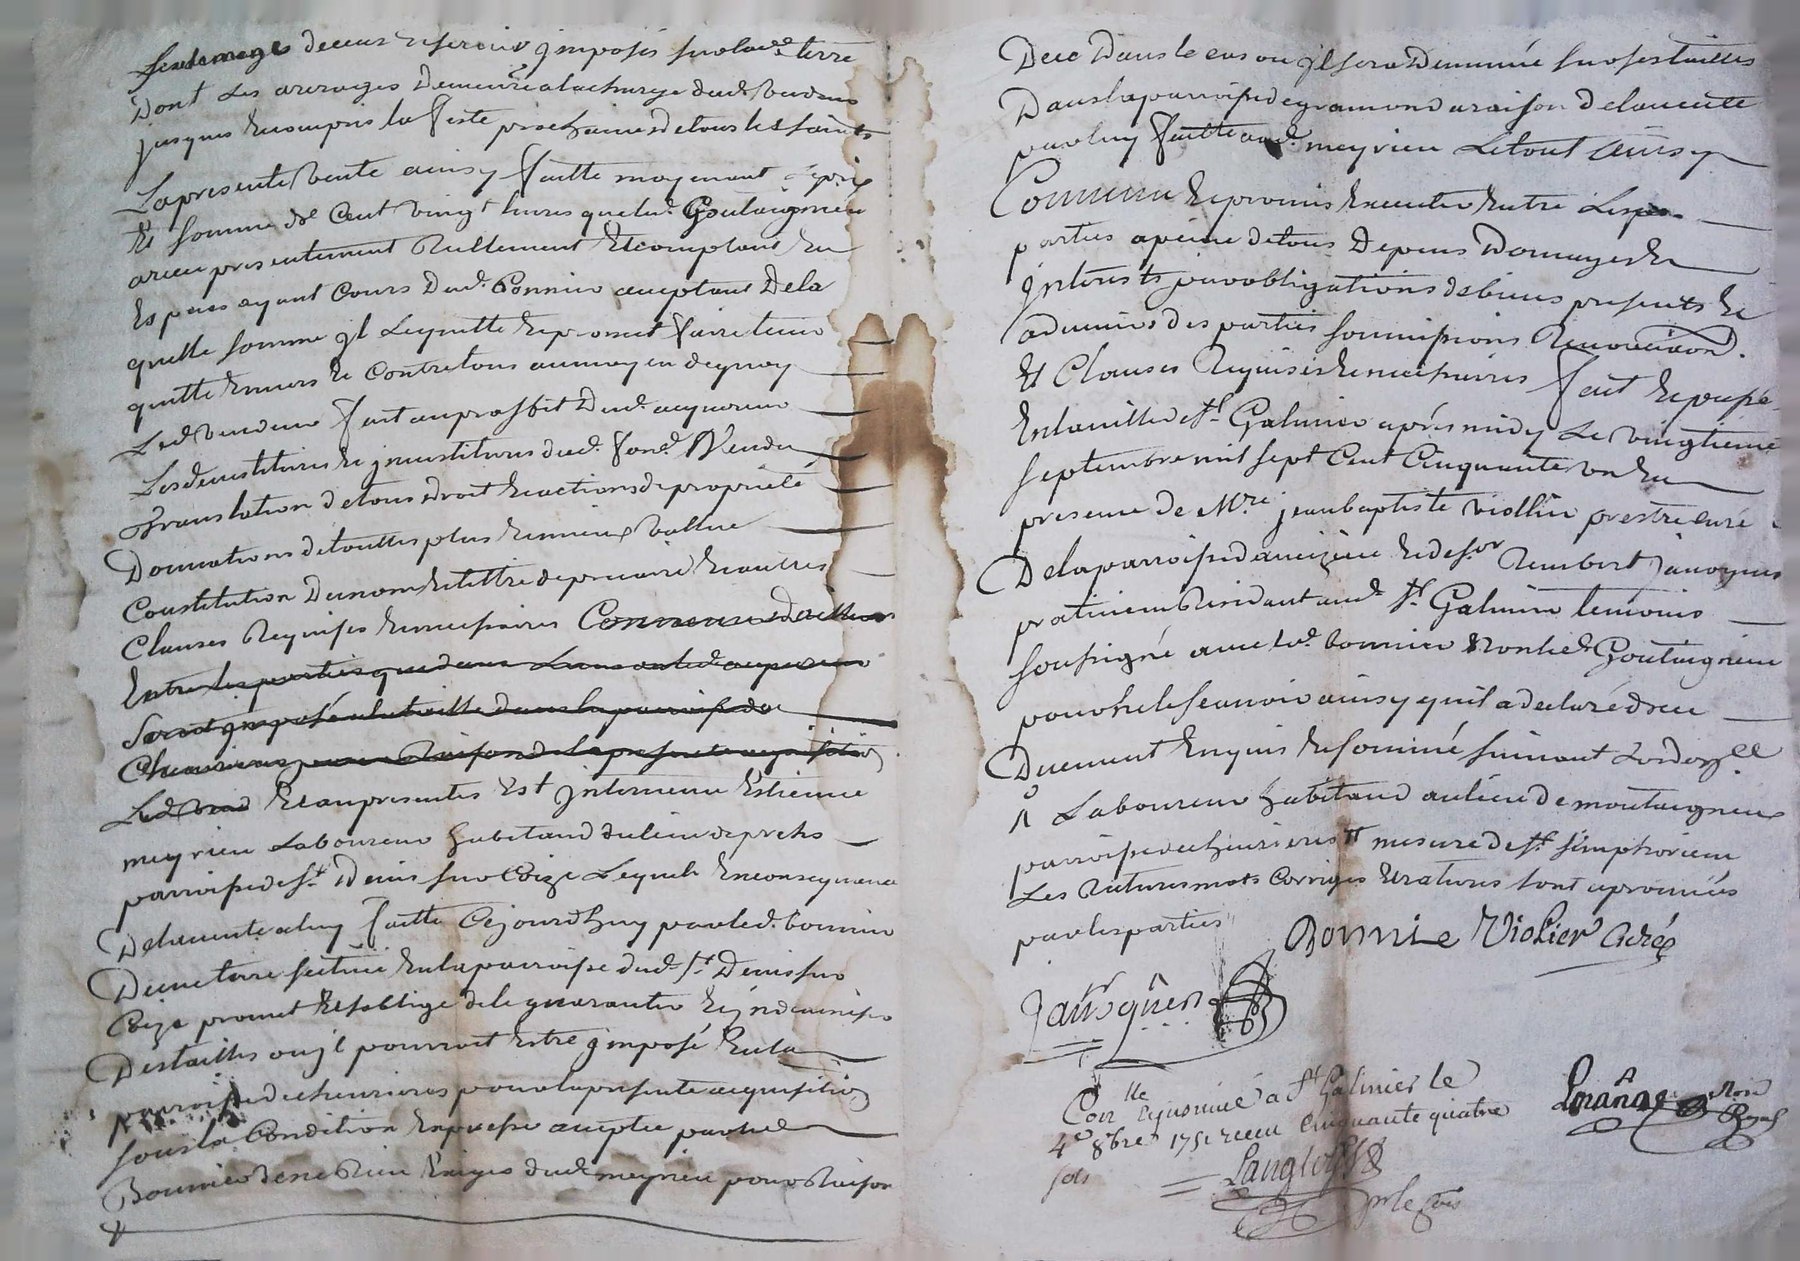 de ceux et servis imposés sur lad.e terre
Dont Les arerages Demeure a la charge dud. Vendeur
jusques et compris la feste prochaines de tous les saints
La presente Vente ainsy faitte moyenant le prix
Et somme de Cent vingt livres que led. Goutaigneu
a reellement Et comptant En
Especes ayant Cours Dud. Bonnier acceptant De la
quelle somme il Le quitte et promet faire tenir
quitte Envers Et Contre tous au moyen de quoy
Led. Vendeur fait au proffit Dud. acquereur
Les devestitures et investitures dud. fond. Vendu
Translation de tous droit et actions de proprieté
Donnations de touttes plus et mieux Vallue
Constitution De nom et tittre de precaire et autres
Clauses Requises et necessaires Convenu
Entre Les parties que dans Le cas ou led. acquereur
Seroit imposé a la taille dans la parroisse de
Chevrieres pour Raison de la presente acquisition
Led. Vend Et au presentes Est Intervenu Estienne
meyrieu Laboureur habitand du lieu de
parroisse de St. Denis sur Coize Lequel En consequence
De la vente a luy faitte Cejourdhuy par led. bonnier
D'une terre scitué En la parroisse dud. St. Denis sur
Coize promet Et s'oblige de le guarantir Et indemniser
Des tailles ou il pourroit Estre imposé En la
parroisse de chevrieres pour la presente acquisition
sous la Condition Expresse acceptée par led.
Bonnier de ne Rien Exiger dud. meyrieu pour Raison
De ce Dans le cas ou il sera Diminué sur ses tailles
Dans la parroisse de gramond a raison de la vente
par luy faitte aud. meyrieu Le tout ainsy
Convenu Et promis Executer Entre Les
parties a peine de tous Depens Domages Et
Interests par obligations de biens presents Et
advenirs des parties soumissions Renonciaon.
Et Clauses Requises Et necessaires fait Et passé
En la ville de St. Galmier aprés midy Le vingtieme
septembre mil sept Cent Cinquante un En
presence de Mre. jean baptiste viollier prestre curé
De la parroisse d'aveizieu et de sr. Rambert Janoyues
praticien Residant aud. St. Galmier temoins
soussigné avec led. bonnier Et non led. Goutaigneu
pour ne le scavoir ainsy qu'il a declaré de ce
Duement Enquis Et sommé suivant Lordce.
Laboureur habitand au lieu de montaigneu
parroisse de chevrieres mesure de St. simphorien
Les Ratures mots Corriges Et ratures sont aprouvées
par les parties
Bonnie Violier Curé
Janoyuer
Conlle a St Galmier le
4e 8bre 1751 receu Cinquante quatre
sols
Langlois